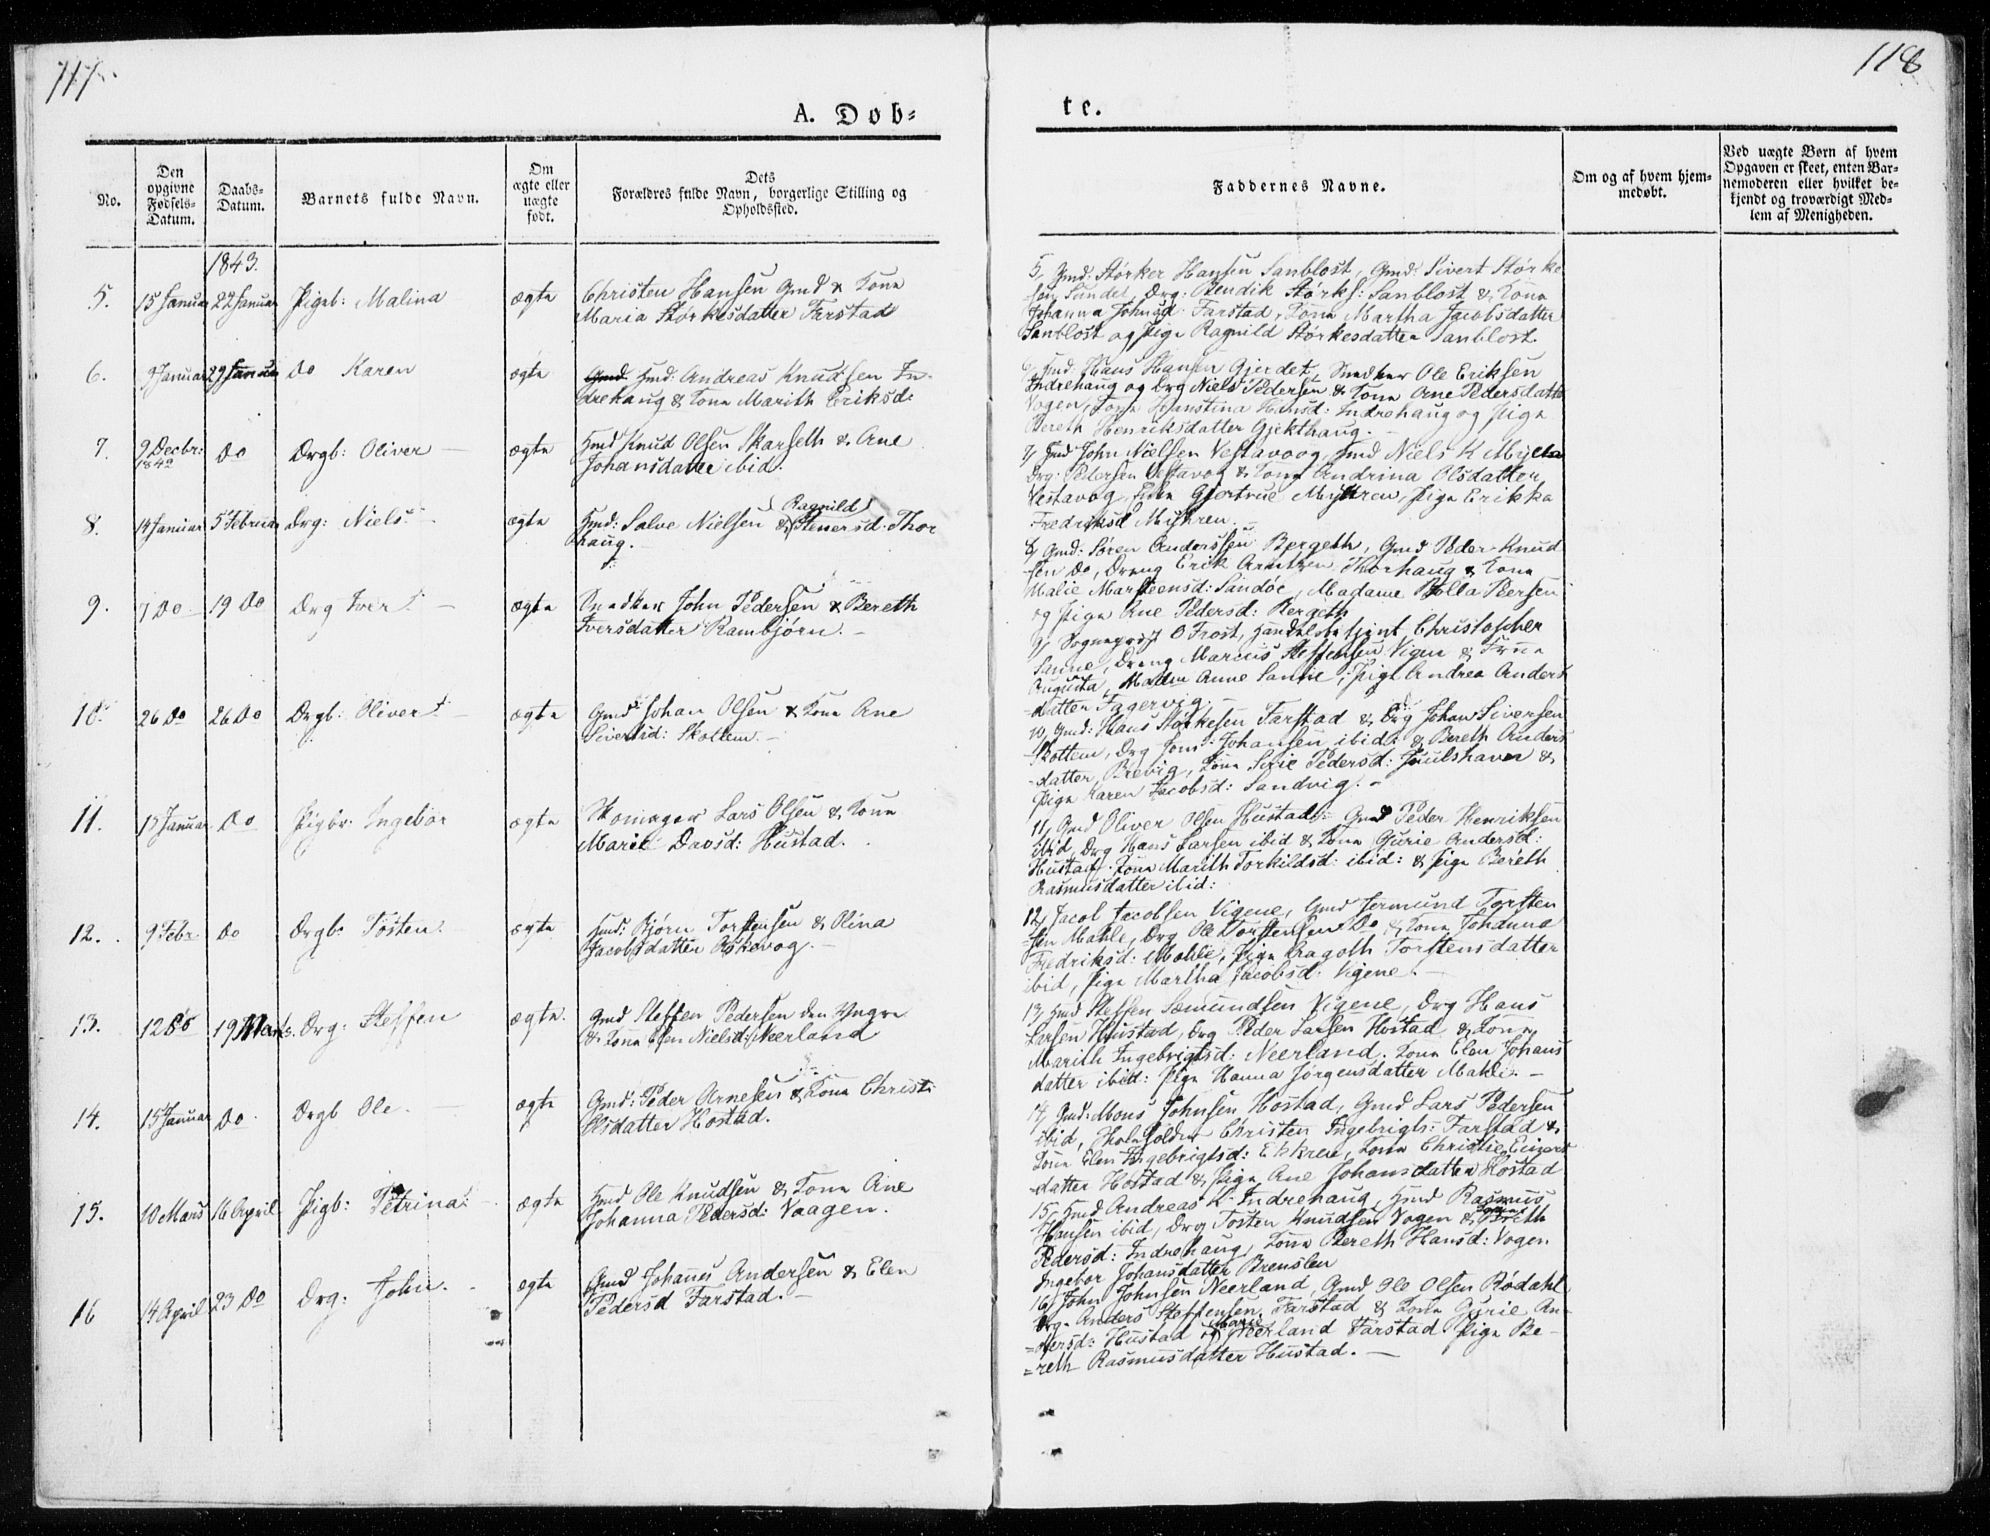 117.
118
A. Døb=
te.
No.
Den opgivne Fødsels-Datum.
Daabs-Datum.
Barnets fulde Navn.
Om ægte eller uægte født.
Dets Forældres fulde Navn, borgerlige Stilling og Opholdssted.
Faddernes Navne.
Om og af hvem hjem-medøbt.
Ved uægte Børn af hvem Opgaven er skeet, enten Bar-nemoderen eller hvilket be-kjendt og troværdigt Med-lem af Menigheden.
1843.
5. 15 Januar 22 Januar Pigeb: Malina ægte Christen Hansen Gmd & Kona
Maria Størkesdatter Farstad
6. 9 Januar 29 Januar Do Karen ægte Gmd Hmd: Andreas Knudsen In-
drehaug & Kona Marith Eriksd:
7. 9 Decbr: 1842 Do Drgb: Oliver — ægte Hmd Knud Olsen Skarseth & Ane
Johansdatter ibid.
8. 14 Januar 5 Februar Drg: Niels — ægte Hmd: Salve Nielsen & (Ragnild) Stenersd. Thor
haug.
9. 7 Do 19 Do Drg Iver — ægte Snedker John Pedersen & Bereth
Iversdatter Rambjørn. —
10. 26 Do 26 Do Drgb: Oliver — ægte Gmd Johan Olsen & Kona Ane
Sivertsd: Skottem. —
11. 15 Januar Do Pigbr: Ingebor ægte Skomager Lars Olsen & Kona
Marit Davsd: Hustad.
12. 9 Febr. Do Drgb: Tosten. ægte Hmd: Bjørn Torstensen & Olina
Jacobsdatter Askevog. —
13. 12 Do 19 Marts. Drg: Steffen ægte. Gmd Steffen Pedersen den Yngre
& Kona Elen Nielsd: Neerland
14. 15 Januar Do. Drgb Ole. — ægte Gmd: Peder Arnesen & Kona Christ:
Olsdatter Hostad.
15. 10 Mars 16 April Pigb: Petrina ægte Hmd Ole Knudsen & Kona Ane
Johanna Pedersd: Vaagen.
16 14 April 23 Do Drg: John. ægte Gmd Johanes Andersen & Elen
Pedersd Farstad. —
5, Gmd: Størker Hansen Sanblost, Gmd: Sivert Størke
sen Sundet, Drg: Bendik Størks: Sanblost & Kona
Johanna Johnsd: Farstad, Kona Martha Jacobsdatter
Sanblost og Pige Ragnild Størkesdatter Sanblost.
6, Hmd: Hans Hansen Gjerdet, Snedker Ole Eriksen
Indrehaug og Drg Niels Pedersen & Kona Ane Pedersdatter
Vogen, Kona Hanstina Hansd: Indrehaug og Pige
Bereth Henriksdatter Gjekthaug. —
7, Hmd John Nielsen Vestavoog, Hmd Niels K
Drg: Pedersen Vestavog & Kona Andrina Olsdatter
Vestavog, Gjertrue Myhren, Pige Erikka
Fredriksd Myhren.
8, Gmd: Søren Anderssen Bergeth, Gmd Peder Knud
sen Do, Dreng Erik Arntzen Thorhaug & Kona
Malie Martensd: Sandøe, Madame Bolla Iversen
og Pige Ane Pedersd: Bergeth
9, Sogneprest O Frost, Handelsbetjent Christopher
Sanne, Dreng Marcus Steffensen Vigen & Frue
Augusta, Madm Anne Sanne, Pige Andrea Anders
datter Fagervig
10, Gmd: Hans Størkesen Farstad & Drg Johan Siversen
Skottem, Drg Jons Johansen ibid: & Bereth Anders
datter Brevig, Kona Serie Pedersd: Juulshavn &
Pige Karen Jacobsd: Sandvig. —
11, Gmd Oliver Olsen Hustad: Gmd Peder Henriksen
ibid, Drg Hans Larsen ibid & Kona Gurie Andersd:
Hustad, Kona Marith Torkildsd: ibid: & Pige Bereth
Rasmusdatter ibid:
12, Jacob Jacobsen Vigene, Gmd Jermund Torsten
sen Mahle, Drg Ole Torstensen Do, & Kona Johanna
Fredriksd: Mahle, Pige Ragoth Torstensdatter
ibid, Pige Martha Jacobsd: Vigene. —
13, Hmd Steffen Semundsen Vigene, Drg Hans
Larsen Hustad, Drg Peder Larsen Hostad & Kona
Marith Ingebrigtsd: Neerland. Kona Elen Johans
datter ibid: Pige Hanna Jørgensdatter Mahle. —
14, Gmd: Mons Johnsen Hostad, Gmd Lars Pedersen
ibid, Skoleholder Christen Ingebrigts: Farstad &
Kona Elen Ingebrigtsd: Eskren, Kona Christie Einers
datter Hostad & Pige Ane Johansdatter Hostad
15, Hmd Andreas K. Indrehaug, Hmd Rasmus
Hansen ibid, Drg Tosten Knudsen Vogen & Breth
Pedersd: Indrehaug, Kona Bereth Hansd: Vogen
Ingebor Johansdatter Brenslen
16, John Johnsen Neerland, Gmd Ole Olsen Rødahl
Drg. Anders Steffensen Farstad & Kona Gurie An-
=dersd: Hustad Marie Neerland Farstad. Pige Be-
=reth Rasmusdatter Hustad. —